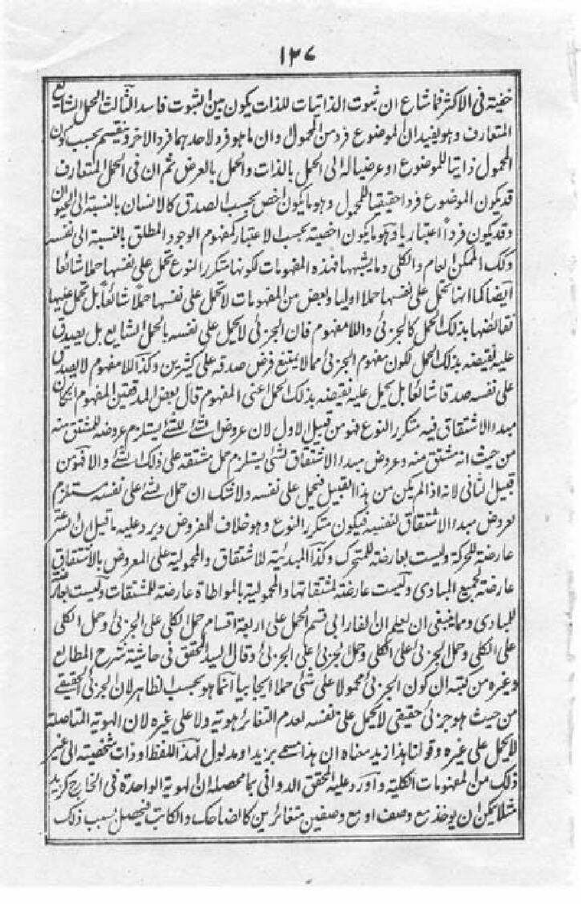 ١٣٧
خفية فى الاكثر فما شاع ان ثبوت الذاتيات للذات يكون بين الثبوت فاسد الثالث الحمل الشايع
المتعارف وهو يفيد ان الموضوع فرد من المحمول وان ما هو فرد لاحدهما فرد الاخر وينقسم بحسب كون
المحمول ذاتيا للموضوع او عرضيا له الى الحمل بالذات والحمل بالعرض ثم ان فى الحمل المتعارف
قد يكون الموضوع فردا حقيقيا للمحمول وهو ما يكون اخص بحسب الصدق كالانسان بالنسبة الى الحيوان
وقد يكون فردا اعتباريا وهو ما يكون اخصيته بحسب الاعتبار كمفهوم الوجود المطلق بالنسبة الى نفسه
وكك الممكن العام والكلى وما يشبهها فهذه المفهومات لكونها متكرر النوع تحمل على نفسها حملا شائعا
ايضا كما انها تحمل على نفسها حملا اوليا وبعض من المفهومات لا تحمل على نفسها حملا شائعا بل تحمل عليها
نقائضها بذلك الحمل كالجزئى واللامفهوم فان الجزئى لا يحمل على نفسه بالحمل الشايع بل يصدق
عليه نقيضه بذلك الحمل لكون مفهوم الجزئى مما لا يمتنع فرض صدقه على كثيرين وكذا اللامفهوم لا يصدق
على نفسه صدقا شائعا بل يحمل عليه نقيضه بذلك الحمل اعنى المفهوم قال بعض المدققين المفهوم ان كان
مبدء الاشتقاق فيه متكرر النوع فهو من قبيل الاول لان عروض الشئ للشئ يستلزم عروضه للمشتق منه
من حيث انه مشتق منه وعروض مبدء الاشتقاق لشئ يستلزم حمل مشتقه على ذلك الشئ والا فهو من
قبيل الثانى لانه اذا لم يكن من هذا القبيل فيحمل على نفسه ولا شك ان حمل الشئ على نفسه مستلزم
لعروض مبدء الاشتقاق لنفسه فيكون متكرر النوع وهو خلاف المفروض ويرد عليه ما قيل ان
عارضة للحركة وليست بعارضة للمتحرك وكذا المبدئية للاشتقاق والمحمولية على المعروض بالاشتقاق
عارضة لجميع المبادى وليست عارضة لمشتقاتها والمحمولية بالمواطاة عارضة للمشتقات وليست بعارضة
للمبادى ومما ينبغى ان يعلم ان الفارابى قسم الحمل على اربعة اقسام حمل الكلى على الجزئى وحمل الكلى
على الكلى وحمل الجزئى على الكلى وحمل الجزئى على الجزئى وقال السيد المحقق فى حاشية شرح المطالع
وغيره من كتبه ان كون الجزئى محمولا على شئ حملا ايجابيا انما هو بحسب الظاهر لان الجزئى الحقيقى
من حيث هو جزئى حقيقى لا يحمل على نفسه لعدم التغائر هوية ولا على غيره لان الهوية المتاصلة
لا يحمل على غيره وقولنا هذا زيد معناه ان هذا مسمى بزيد او مدلول لهذا اللفظ او ذات شخصيته الى غير
ذلك من المفهومات الكلية واورد عليه المحقق الدوانى بما محصله ان الهوية الواحدة فى الخارج كزيد
مثلا يمكن ان يوخذ مع وصف او مع وصفين متغائرين كالضاحك والكاتب فيحصل بسبب ذلك